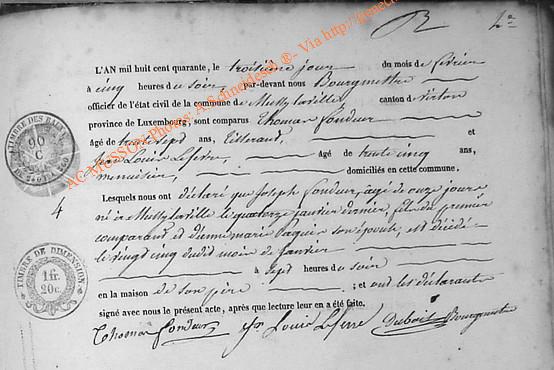 R 4e
L'AN mil huit cent quarante, le troisième jour du mois de février
à cinq heures du soir, par-devant nous Bourgmestre
officier de l'état civil de la commune de Mussy la ville, canton de Virton
province de Luxembourg, sont comparus Thomas Condeur
Agé de trente sept ans, Tisserand, et
Jean Louis Lefevre, âgé de trente cinq ans,
menuisier, domiciliés en cette commune.
Lesquels nous ont déclaré que Joseph Condeur, agé de onze jours
né à Mussy la ville le quatorze janvier dernier, fils du premier
comparant et d'anne marie Paquis son épouse, est décédé
le vingt cinq dudit mois de janvier
à sept heures du soir
en la maison de son père ; et ont les déclarants
signé avec nous le présent acte, après que lecture leur en a été faite.
Thomas Condeur Jn Louis Lefevre Dubois Bourgmestre
4
TIMBRE DES
90
C
TIMBRE DE DIMENSION
1 fr.
20 c.
AG MUSSON Photos: A.Schneidesch ®- Via http://genech